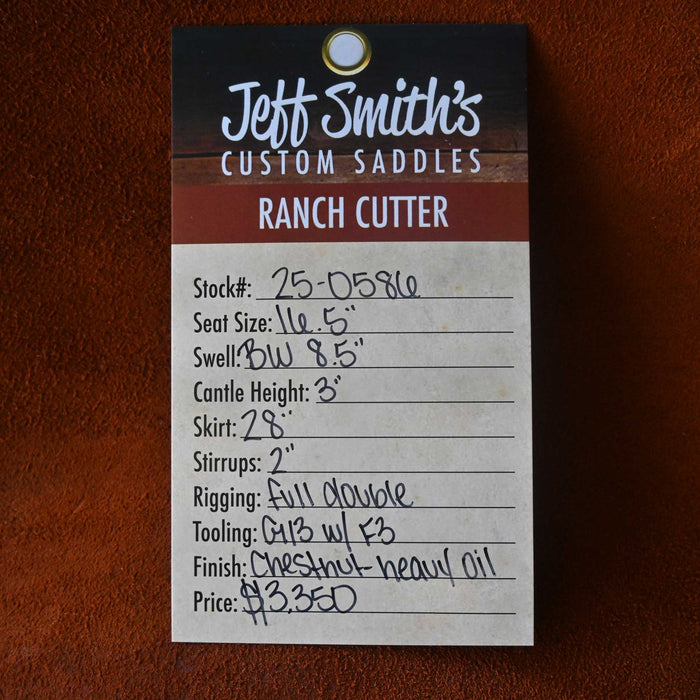 Jeff Smith's
CUSTOM SADDLES
RANCH CUTTER
Stock#: 25-0586
Seat Size: 16.5"
Swell: BW 8.5"
Cantle Height: 3"
Skirt: 28"
Stirrups: 2"
Rigging: full double
Tooling: G13 w/ F3
Finish: Chestnut-heavy oil
Price: $3,350